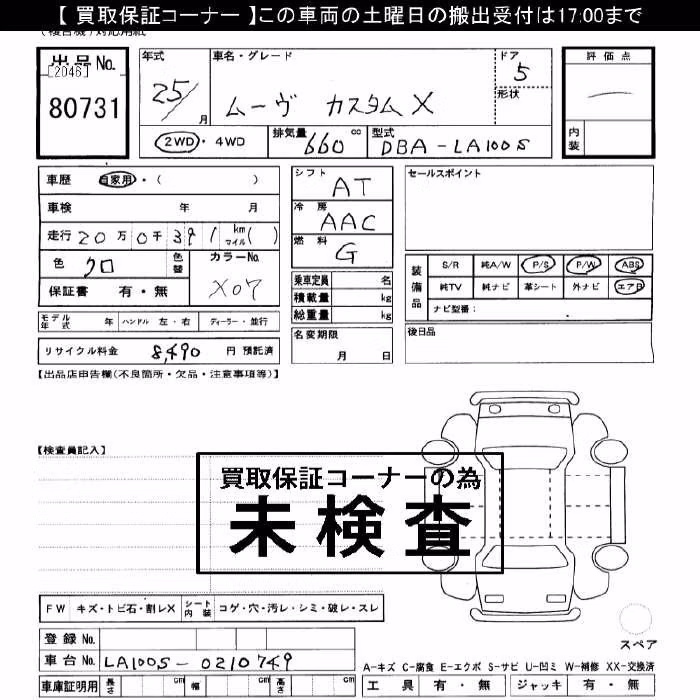 【 買取保証コーナー 】この車両の土曜日の搬出受付は17:00まで
出品No.
[2046]
80731
年式
25/
月
車名・グレード
ムーヴ カスタムX
ドア
5
形状
評価点
内装
2WD・4WD
排気量
660 cc
型式
DBA-LA100S
車歴 自家用・( )
車検 年 月
走行 20万0千391 km マイル( )
色 クロ
色替
カラーNo.
X07
保証書 有・無
シフト AT
冷房 AAC
燃料 G
セールスポイント
乗車定員 名
積載量 kg
総重量 kg
装備品
S/R 純A/W P/S P/W ABS
純TV 純ナビ 革シート 外ナビ エアB
ナビ型番:
モデル年式 年 ハンドル 左・右 ディーラー・並行
名変期限
月 日
後日品
リサイクル料金 8,490 円 預託済
【出品店申告欄(不良箇所・欠品・注意事項等)】
【検査員記入】
買取保証コーナーの為
未検査
FW キズ・トビ石・割レX シート内装 コゲ・穴・汚レ・シミ・破レ・スレ
スペア
登録No.
車台No. LA100S-0210749
A-キズ C-腐食 E-エクボ S-サビ U-凹ミ W-補修 XX-交換済
車庫証明用 長さ cm 幅 cm 高さ cm
工具 有・無 ジャッキ 有・無